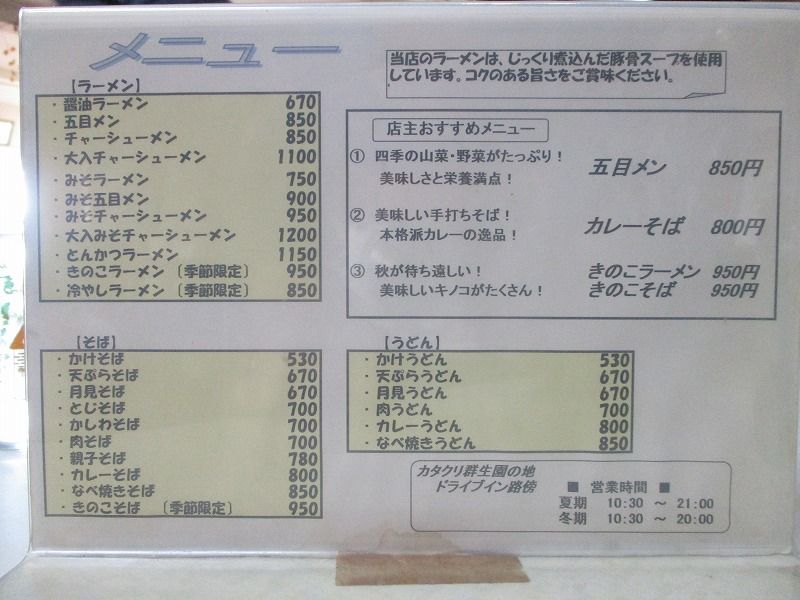 メニュー
当店のラーメンは、じっくり煮込んだ豚骨スープを使用
しています。コクのある旨さをご賞味ください。
【ラーメン】
・醤油ラーメン 670
・五目メン 850
・チャーシューメン 850
・大入チャーシューメン 1100
・みそラーメン 750
・みそ五目メン 900
・みそチャーシューメン 950
・大入みそチャーシューメン 1200
・とんかつラーメン 1150
・きのこラーメン〔季節限定〕 950
・冷やしラーメン〔季節限定〕 850
店主おすすめメニュー
① 四季の山菜・野菜がたっぷり！
美味しさと栄養満点！
五目メン 850円
② 美味しい手打ちそば！
本格派カレーの逸品！
カレーそば 800円
③ 秋が待ち遠しい！
美味しいキノコがたくさん！
きのこラーメン 950円
きのこそば 950円
【そば】
・かけそば 530
・天ぷらそば 670
・月見そば 670
・とじそば 700
・かしわそば 700
・肉そば 700
・親子そば 780
・カレーそば 800
・なべ焼きそば 850
・きのこそば 〔季節限定〕 950
【うどん】
・かけうどん 530
・天ぷらうどん 670
・月見うどん 670
・肉うどん 700
・カレーうどん 800
・なべ焼きうどん 850
カタクリ群生園の地
ドライブイン路傍
■ 営業時間 ■
夏期 10:30 ～ 21:00
冬期 10:30 ～ 20:00